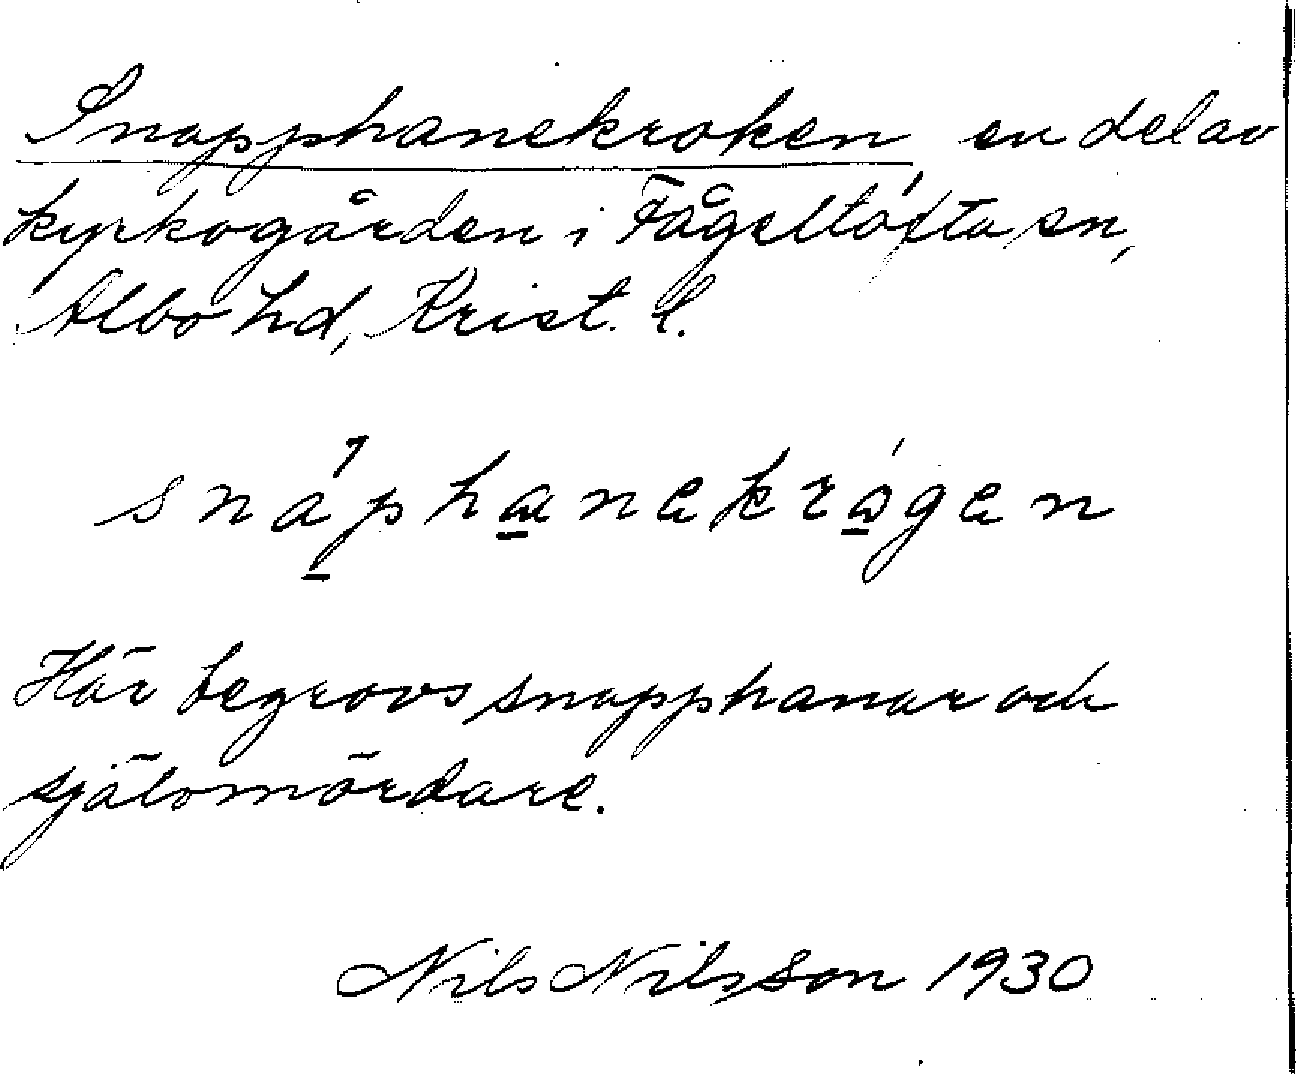 Snapphanekroken, en del av
kyrkogården i Fågeltofta sn,
Albo hd, Krist. l.
snáphanekrågen
Här begrovs snapphanar och
självmördare.
Nils Nilsson 1930